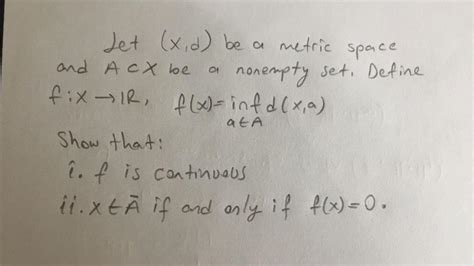 Let (X,d) be a metric space
and A ⊂ X be a nonempty set. Define
f: X → IR, f(x) = inf d(x,a)
a∈A
Show that:
i. f is continuous
ii. x ∈ Ā if and only if f(x)=0.